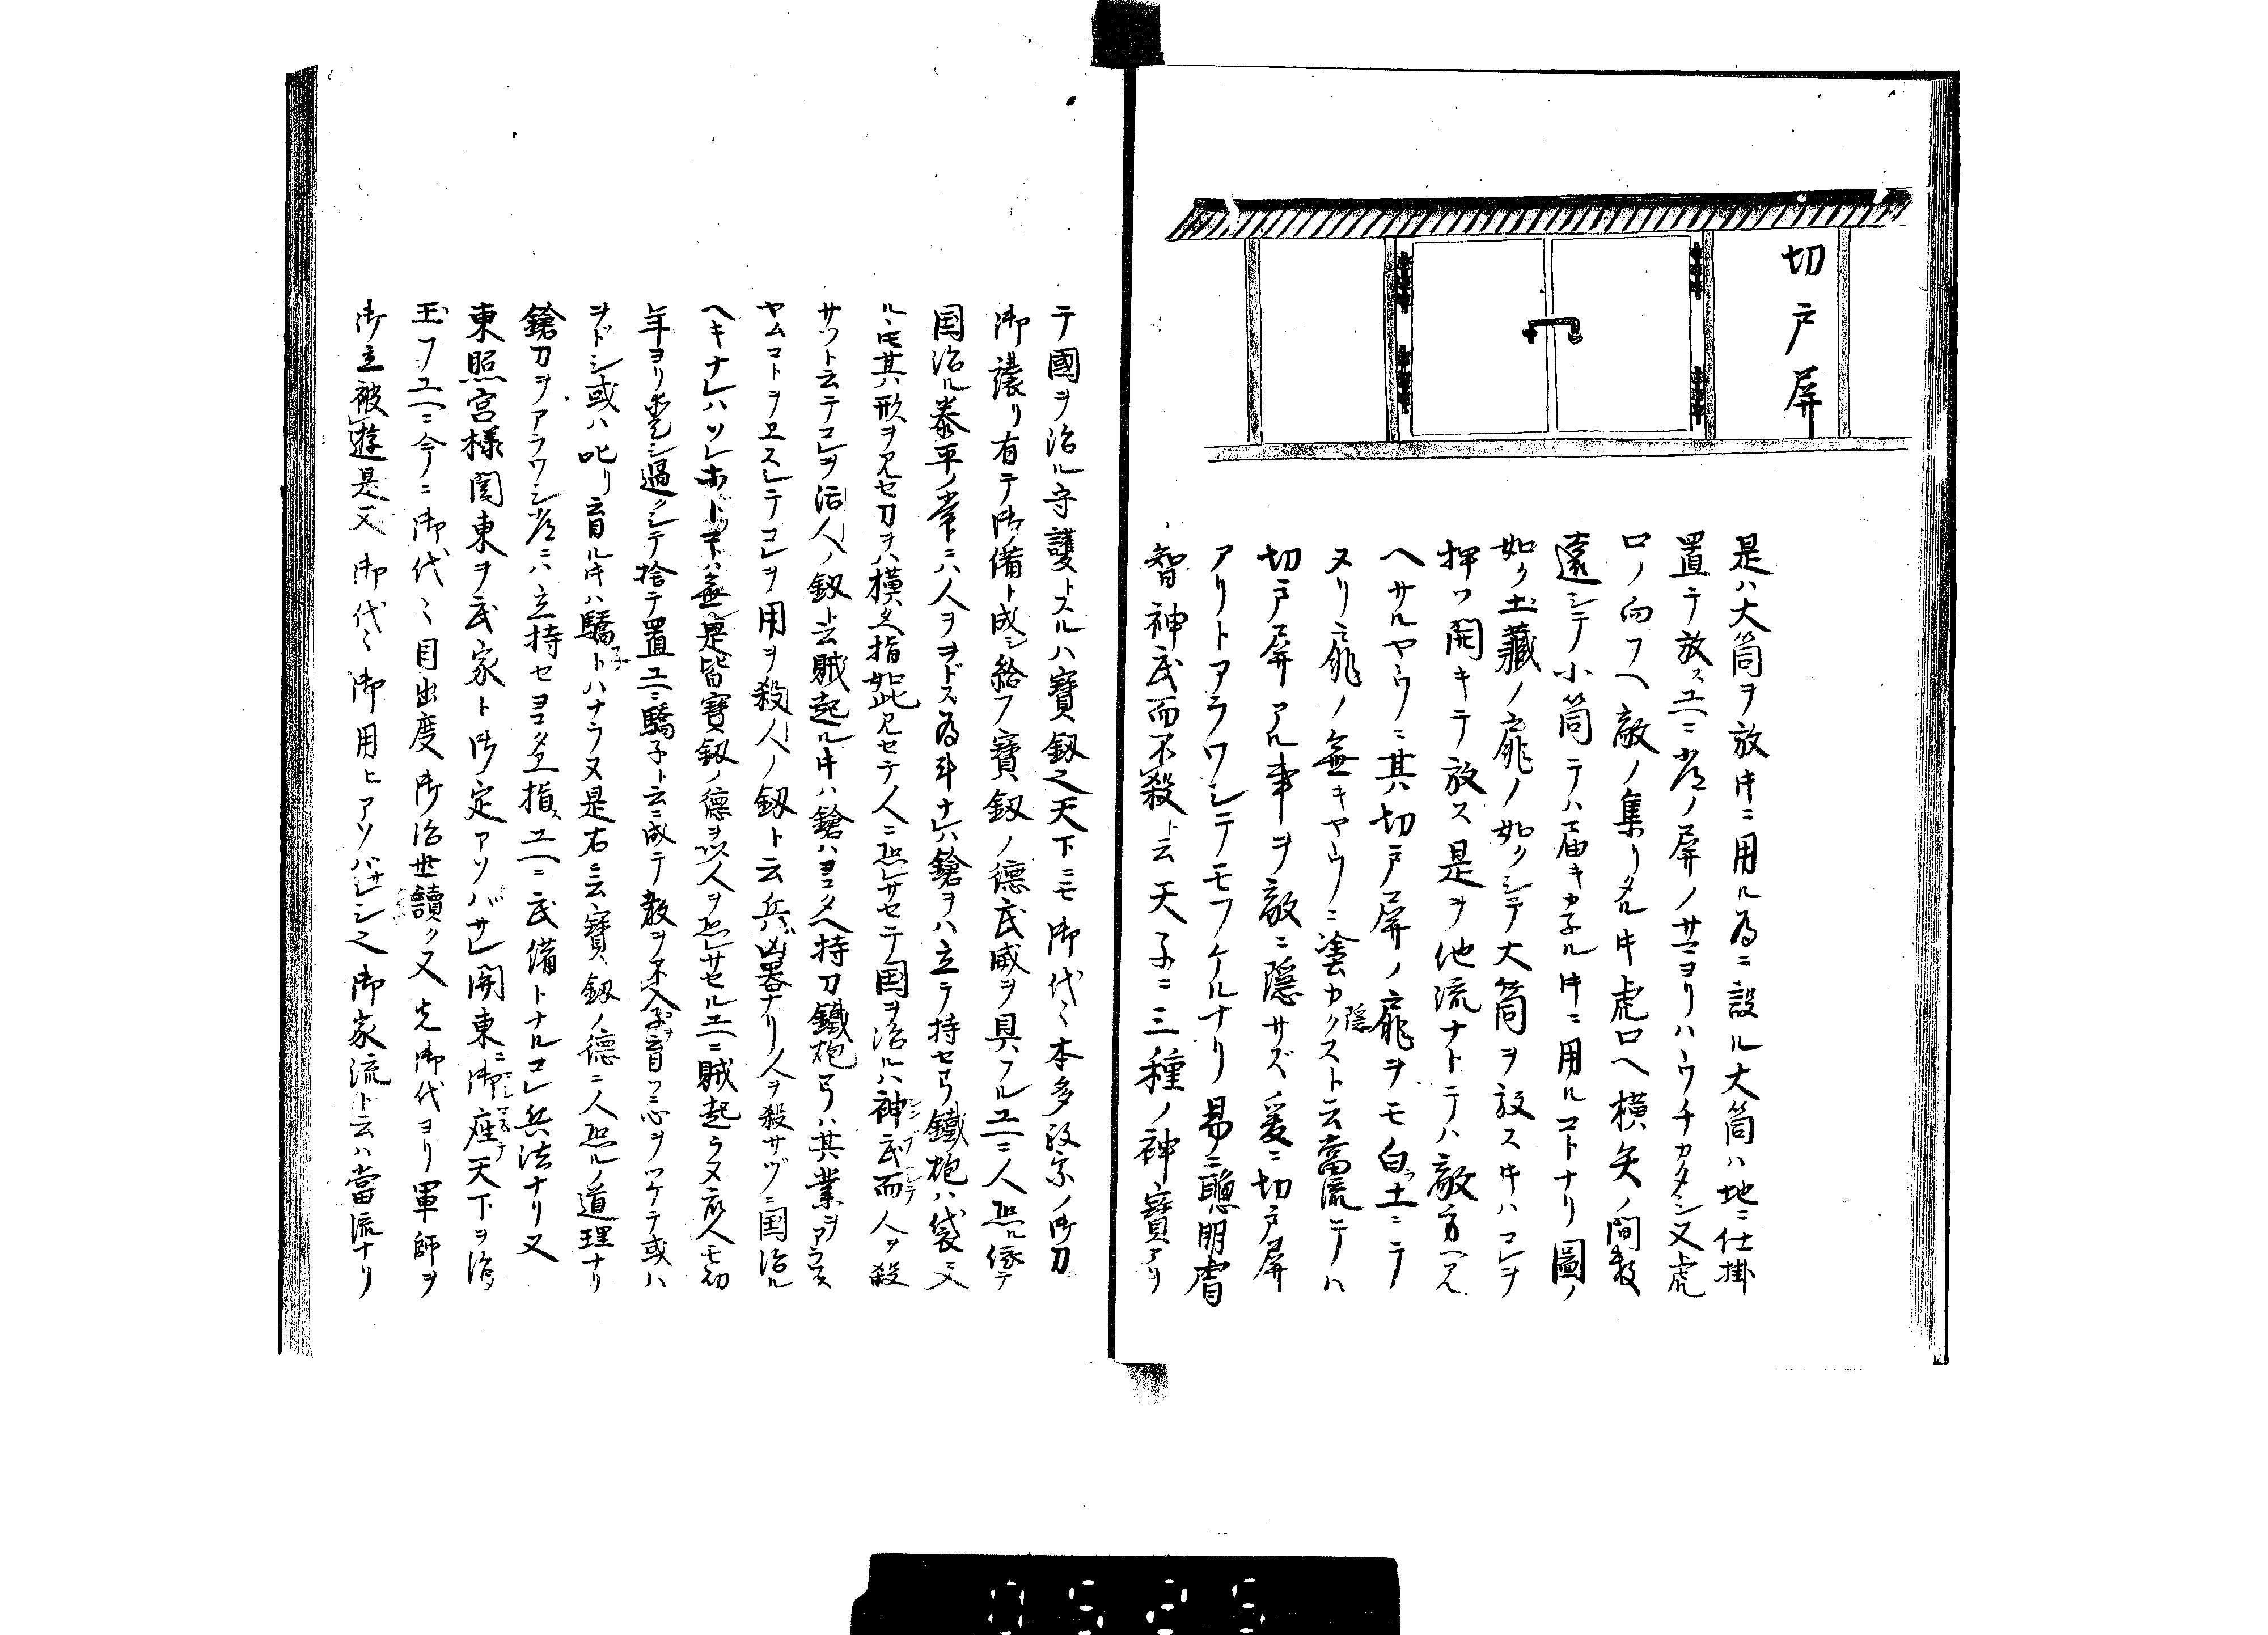 切戸屏
是ハ大筒ヲ放时ニ用ル為ニ設ル大筒ハ地ニ仕掛
置テ放スユヘニ常ノ屏ノサマヨリハウチカタシ又虎
口ノ向フヘ敵ノ集リタル时虎口ヘ横矢ノ間数
遠シテ小筒テハ届キカ子ル时ニ用ルコトナリ圖ノ
如ク土藏ノ扉ノ如クシテ大筒ヲ放ス时ハコレヲ
押ツ開キテ放ス是ヲ他流ナトテハ敵方ヘ見
ヘサルヤウニ其切戸屏ノ扉ヲモ白土ニテ
ヌリ扉ノ無キヤウニ塗カクスト云當流ニテハ
隠
切戸屏アル事ヲ敵ニ隠サズ爰ニ切戸屏
アリトアラワシテモフケルナリ易ニ聰明睿
智神武而不殺ト云天子ニ三種ノ神寶アリ
テ國ヲ治ル守護トスルハ寶釼之天下ニモ御代々本多政宗ノ御刀
御譲リ有テ御備ト成シ給フ寶釼ノ德武威ヲ具フルユヘニ人恐ル係テ
国治ル泰平ノ常ニハ人ヲヲドス為斗ナレハ鎗ヲハ立テ持セ弓鐵炮ハ袋ニ入
ル时其ハ形ヲ見セ刀ヲハ横タヘ指如此見セテ人ニ恐レサセテ国ヲ治ルハ神武而人ヲ殺
シンブニシテ
サツト云テコレヲ活人ノ釼ト云賊起ル时ハ鎗ハヨコタヘ持刀鐵炮弓ハ其業ヲアラワス
ヤムコトヲヱスシテコレヲ用ヲ殺人ノ釼ト云兵ハ凶器ナリ人ヲ殺サヅニ国治ル
ヘキナレハソレホドヨキハ無シ是皆寶釼ノ德ヲ以人ヲ恐レサセルユヘニ賊起ラヌ哀人モ幼
年ヨリ愛シ過クシテ捨テ置ユヘニ驕子ト云ニ成テ教ヲ不入子ヲ育ツニ心ヲツケテ或ハ
ヲドシ或ハ叱リ育ル时ハ驕子トハナラヌ是右ニ云寶釼ノ德ニ人恐ルノ道理ナリ
鎗刀ヲアラワシ常ニハ立持セヨコタヘ指スユヘニ武備トナルコレ兵法ナリ又
東照宮様関東ヲ武家ト御定アソバサレ関東ニ御座天下ヲ治
玉フユヘニ今ニ御代々目出度御治世讀ク又先御代ヨリ軍師ヲ
御立被遊是又御代々御用ヒアソバサレシ之御家流ト云ハ當流ナリ